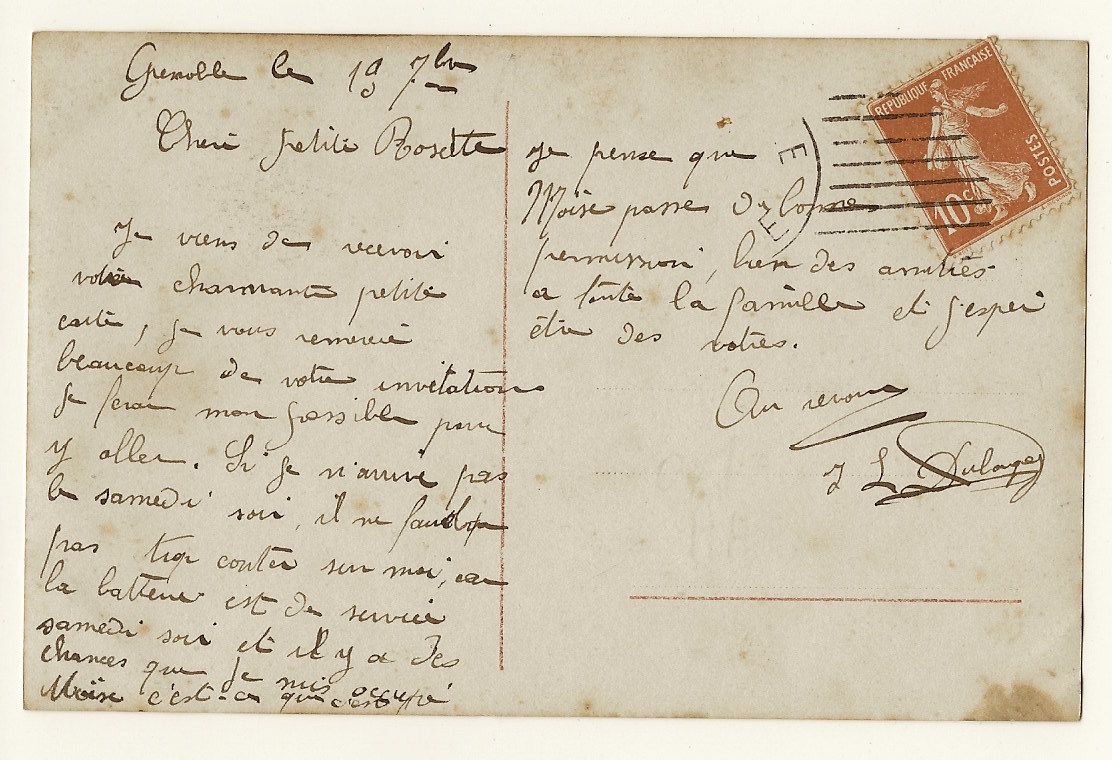 Grenoble le 19 7bre
Cheri petite Rosette
Je viens de recevoir
votre charmante petite
carte, je vous remercie
beaucoup de votre invitation
Je ferai mon possible pour
y aller. Si je n'arrive pas
le samedi soir, il ne faudra
pas trop conter sur moi, car
la batterie est de service
samedi soir et il y a des
chances que je sois occupé
Moïse c'est-ce que c'est
Je pense que
Moïse passe de bonnes
permission, bien des amitiés
a toute la famille et j'esper
être des votres.
Au revoir
J L
REPUBLIQUE FRANÇAISE
POSTES
10c
E
E